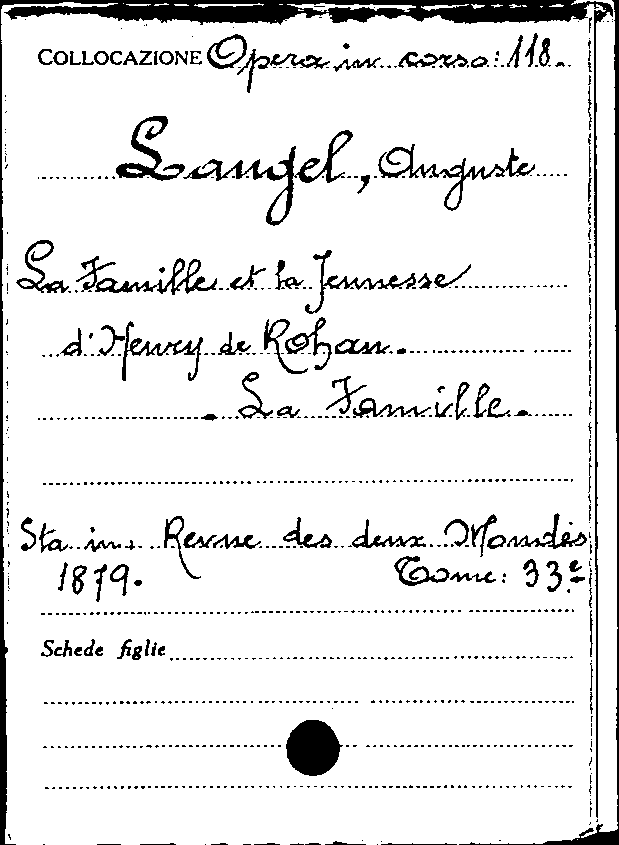 COLLOCAZIONE Opera in corso: 118.
Laugel, Auguste
La Famille et la Jeunesse
d'Henry de Rohan.
. La Famille.
Sta in: Revue des deux Mondes
1879. Tome: 33.e
Schede figlie